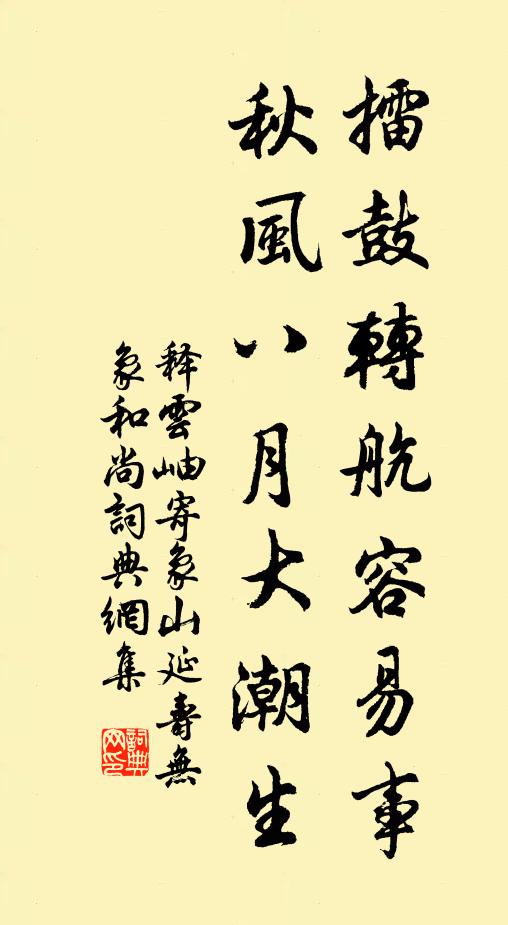 擂鼓轉航容易事
秋風八月大潮生
释雲岫寄象山延壽無
象和尚詞典網集
詞典網印